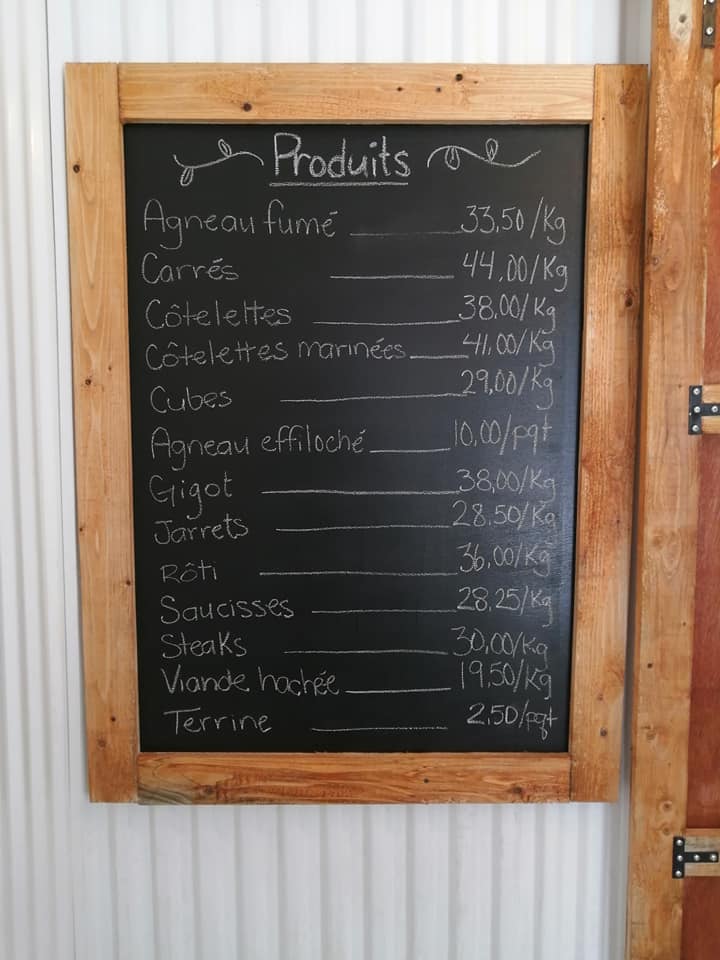 Produits
Agneau fumé 33,50/Kg
Carrés 44,00/Kg
Côtelettes 38,00/Kg
Côtelettes marinées 41,00/Kg
Cubes 29,00/Kg
Agneau effiloché 10,00/pqt
Gigot 38,00/Kg
Jarrets 28,50/Kg
Rôti 36,00/Kg
Saucisses 28,25/Kg
Steaks 30,00/Kg
Viande hachée 19,50/Kg
Terrine 2,50/pqt